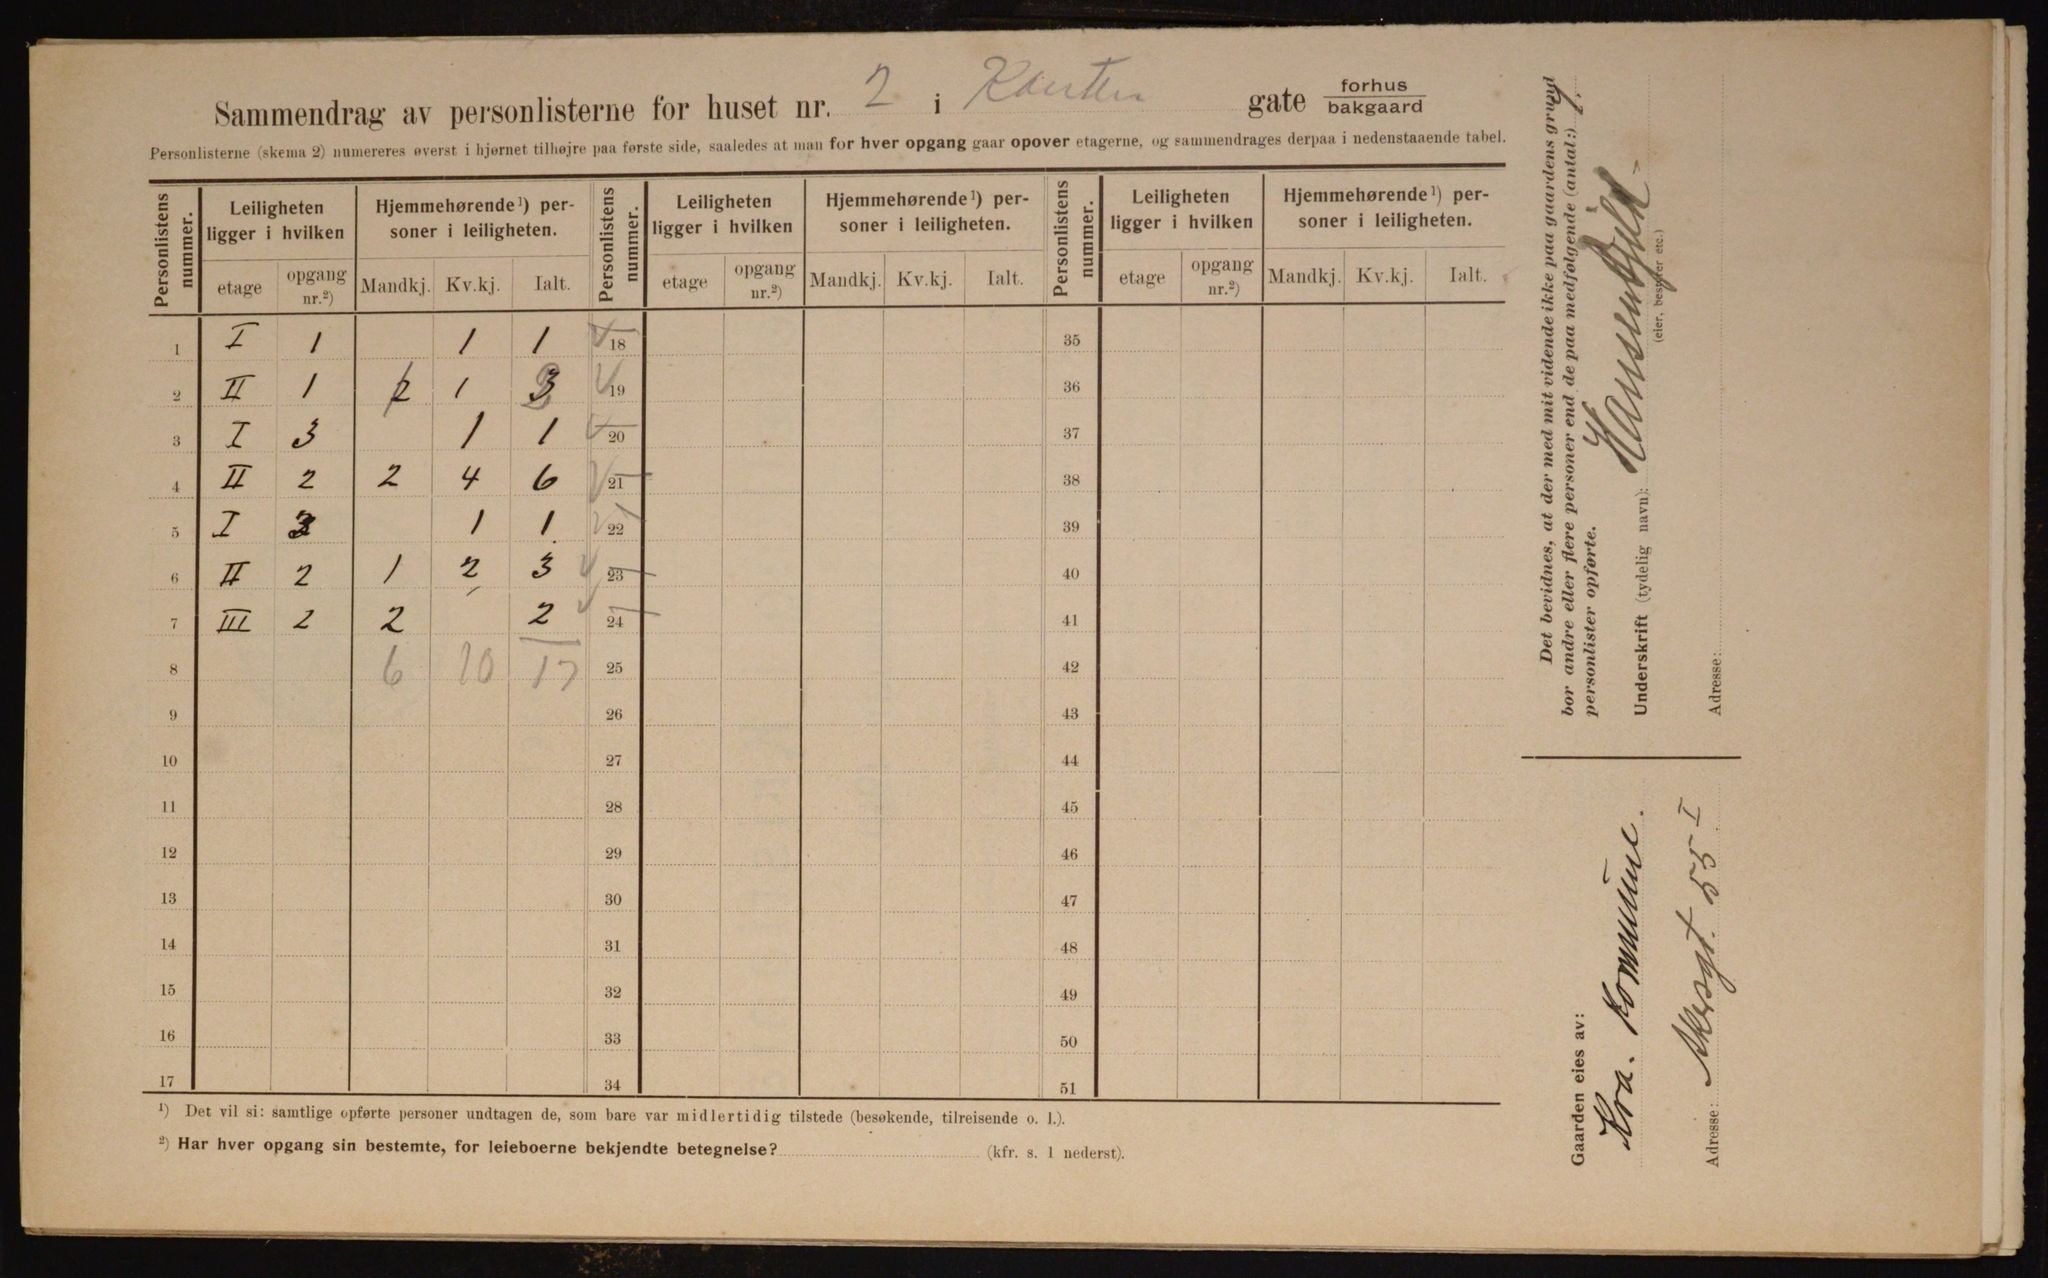 Sammendrag av personlisterne for huset nr. 2 i gate forhus bakgaard
Personlisterne (skema 2) numereres øverst i hjørnet tilhøjre paa første side, saaledes at man for hver opgang gaar opover etagerne, og sammendrages derpaa i nedenstaaende tabel.
Personlistens nummer. Leiligheten ligger i hvilken Hjemmehørende¹) personer i leiligheten. Personlistens nummer. Leiligheten ligger i hvilken Hjemmehørende¹) personer i leiligheten. Personlistens nummer. Leiligheten ligger i hvilken Hjemmehørende¹) personer i leiligheten.
etage opgang nr.²) Mandkj. Kv.kj. Ialt. etage opgang nr.²) Mandkj. Kv.kj. Ialt. etage opgang nr.²) Mandkj. Kv.kj. Ialt.
1 I 1 1 1 18 35
2 II 1 2 1 3 19 36
3 I 3 1 1 20 37
4 II 2 2 4 6 21 38
5 I 3 1 1 22 39
6 II 2 1 2 3 23 40
7 III 2 2 2 24 41
8 6 10 17 25 42
9 26 43
10 27 44
11 28 45
12 29 46
13 30 47
14 31 48
15 32 49
16 33 50
17 34 51
¹) Det vil si: samtlige opførte personer undtagen de, som bare var midlertidig tilstede (besøkende, tilreisende o. l.).
²) Har hver opgang sin bestemte, for leieboerne bekjendte betegnelse? (kfr. s. 1 nederst).
Det bevidnes, at der med mit vidende ikke paa gaardens grund
bor andre eller flere personer end de paa medfølgende (antal:) 7.
personlister opførte.
Underskrift (tydelig navn):
(eier, bestyrer etc.)
Adresse:
Gaarden eies av:
Kra. Kommune.
Adresse: Akersgt. 55 I